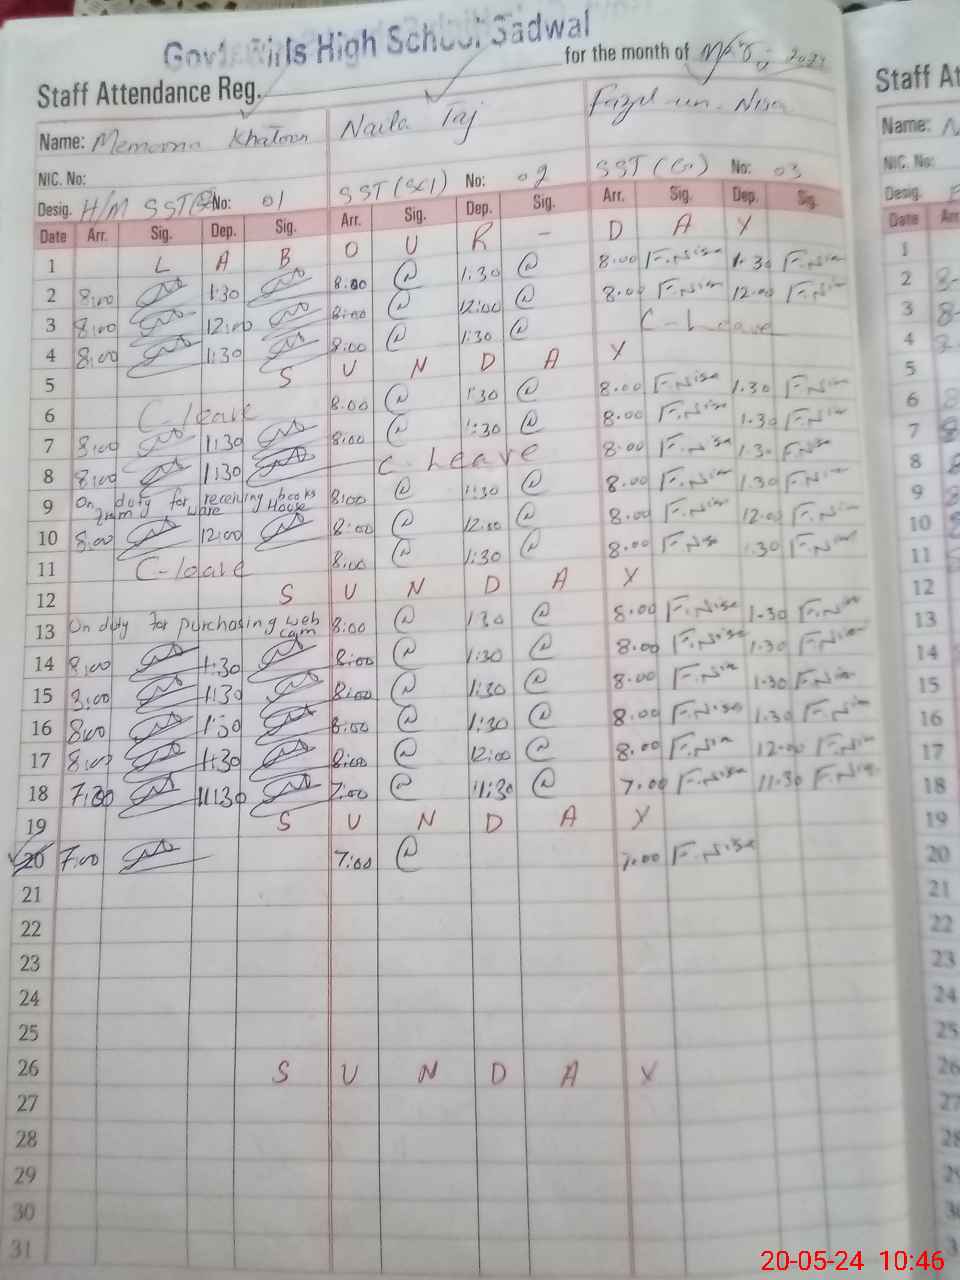 Govt. Girls High School Sadwal
Staff Attendance Reg. for the month of May, 2024
Name: Memoona Khatoon Naila Taj Fazal un Nisa
NIC. No:
Desig. H/M SST No: 01 SST (SCI) No: 02 SST (G) No: 03
Date Arr. Sig. Dep. Sig. Arr. Sig. Dep. Sig. Arr. Sig. Dep. Sig.
1 L A B O U R - D A Y
2 8:00 1:30 8:00 @ 1:30 @ 8:00 F.Nisa 1.30 F.Nisa
3 8:00 12:00 8:00 @ 12:00 @ 8.00 F.Nisa 12.00 F.Nisa
4 8:00 1:30 8:00 @ 1:30 @ C-Leave
5 S U N D A Y
6 C-leave 8:00 @ 1:30 @ 8.00 F.Nisa 1.30 F.Nisa
7 8:00 1:30 8:00 @ 1:30 @ 8.00 F.Nisa 1.30 F.Nisa
8 8:00 1:30 C. Leave 8.00 F.Nisa 1.30 F.Nisa
9 On duty for receiving books from ware House 8:00 @ 1:30 @ 8.00 F.Nisa 1.30 F.Nisa
10 8:00 12:00 8:00 @ 12:00 @ 8.00 F.Nisa 12.00 F.Nisa
11 C-leave 8:00 @ 1:30 @ 8.00 F.Nisa 1.30 F.Nisa
12 S U N D A Y
13 On duty for purchasing web cam 8:00 @ 1:30 @ 8.00 F.Nisa 1.30 F.Nisa
14 8:00 1:30 8:00 @ 1:30 @ 8.00 F.Nisa 1.30 F.Nisa
15 8:00 1:30 8:00 @ 1:30 @ 8.00 F.Nisa 1.30 F.Nisa
16 8:00 1:30 8:00 @ 1:30 @ 8.00 F.Nisa 1.30 F.Nisa
17 8:00 1:30 8:00 @ 12:00 @ 8.00 F.Nisa 12.00 F.Nisa
18 7:30 11:30 7:00 @ 11:30 @ 7.00 F.Nisa 11.30 F.Nisa
19 S U N D A Y
20 7:00 7:00 @ 7.00 F.Nisa
21
22
23
24
25
26 S U N D A Y
27
28
29
30
31
Staff At
Name:
NIC. No:
Desig.
Date Arr
1
2
3
4
5
6
7
8
9
10
11
12
13
14
15
16
17
18
19
20
21
22
23
24
25
26
27
28
29
20-05-24 10:46